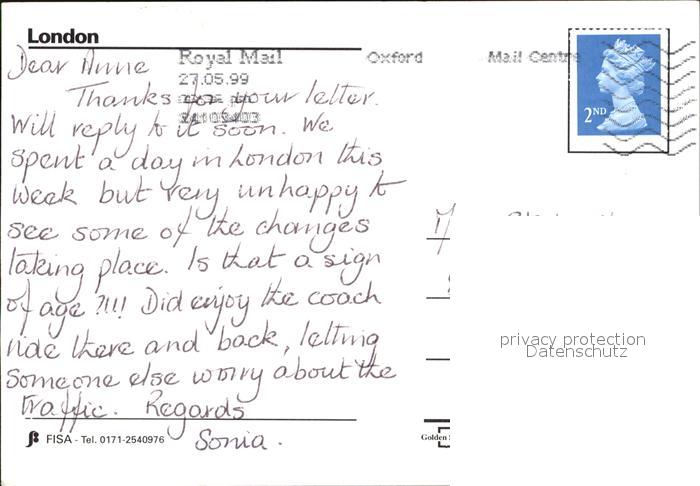 London
Royal Mail
Oxford
Mail Centre
27.05.99
2ND
Dear Anne
Thanks for your letter.
Will reply to it soon. We
spent a day in London this
week but very unhappy to
see some of the changes
taking place. Is that a sign
of age ?!!! Did enjoy the coach
ride there and back, letting
someone else worry about the
traffic. Regards
Sonia.
FISA - Tel. 0171-2540976
Golden
privacy protection
Datenschutz